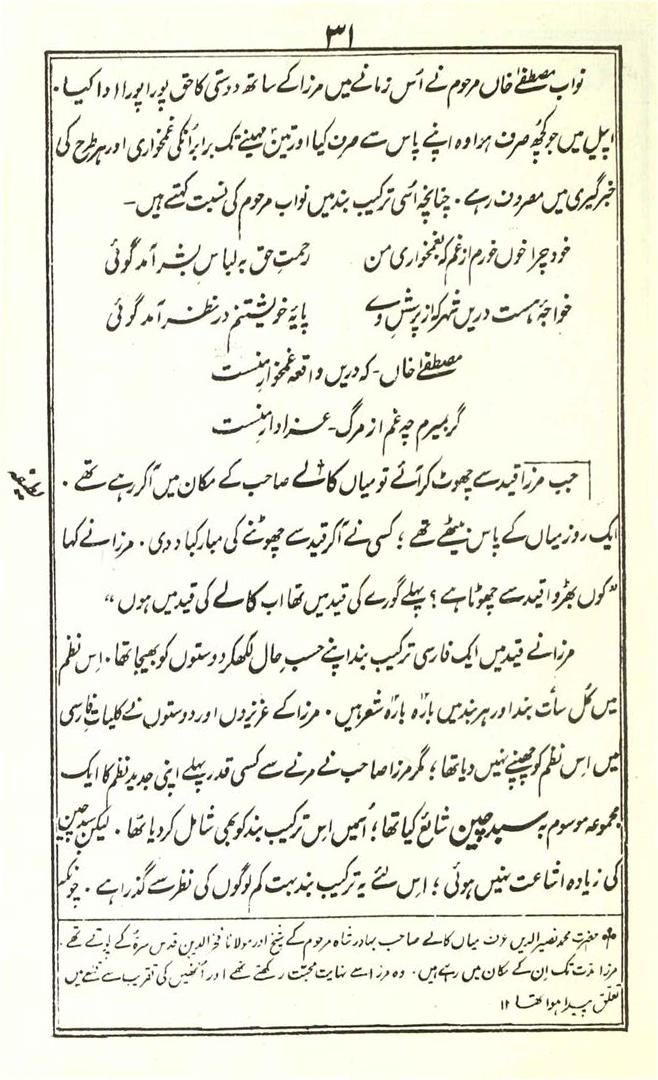 ۳۱
نواب مصطفےٰ خاں مرحوم نے اُس زمانے میں مرزا کے ساتھ دوستی کا حق پورا پورا ادا کیا۔
اپیل میں جو کچھ صرف ہوا وہ اپنے پاس سے صرف کیا اور تین مہینے تک برابر اُنکی غمخواری اور ہر طرح کی
خبر گیری میں مصروف رہے۔ چنانچہ اُسی ترکیب بند میں نواب مرحوم کی نسبت کہتے ہیں۔
خود چرا خوں خورم از غم کہ بغمخواری من رحمتِ حق بہ لباسِ بشر آمد گوئی
خواجۂ ہست دریں شہر کہ از پرسشِ وے پایۂ خویشتنم در نظر آمد گوئی
مصطفےٰ خاں۔ کہ دریں واقعہ غمخوارِ منست
گر بمیرم چہ غم از مرگ۔ عزادارِ منست
لطیفہ
جب مرزا قید سے چھوٹ کر آئے تو میاں کالے صاحب کے مکان میں آکر رہے تھے۔
ایک روز میاں کے پاس بیٹھے تھے؛ کسی نے آکر قید سے چھوٹنے کی مبارکباد دی۔ مرزا نے کہا
"کون بھڑوا قید سے چھوٹا ہے؟ پہلے گورے کی قید میں تھا اب کالے کی قید میں ہوں"
مرزا نے قید میں ایک فارسی ترکیب بند اپنے حسبِ حال لکھکر دوستوں کو بھیجا تھا۔ اِس نظم
میں کُل سات بند اور ہر بند میں بارہ بارہ شعر ہیں۔ مرزا کے عزیزوں اور دوستوں نے کلیاتِ فارسی
میں اِس نظم کو چھپنے نہیں دیا تھا؛ مگر مرزا صاحب نے مرنے سے کسی قدر پہلے اپنی جدید نظم کا ایک
مجموعہ موسوم بہ سبد چین شائع کیا تھا؛ اُسمیں اِس ترکیب بند کو بھی شامل کر دیا تھا۔ لیکن سبد چین
کی زیادہ اشاعت نہیں ہوئی؛ اِس لئے یہ ترکیب بند بہت کم لوگوں کی نظر سے گذرا ہے۔ چونکہ
حضرت محمد نصیر الدین عرف میاں کالے صاحب بہادر شاہ مرحوم کے شیخ اور مولانا فخر الدین قدس سرہٗ کے پوتے تھے۔
مرزا مدت تک اِن کے مکان میں رہے ہیں۔ وہ مرزا سے نہایت محبت رکھتے تھے اور اُنھیں کی تقریب سے قلعے میں
تعلق پیدا ہوا تھا ۱۲